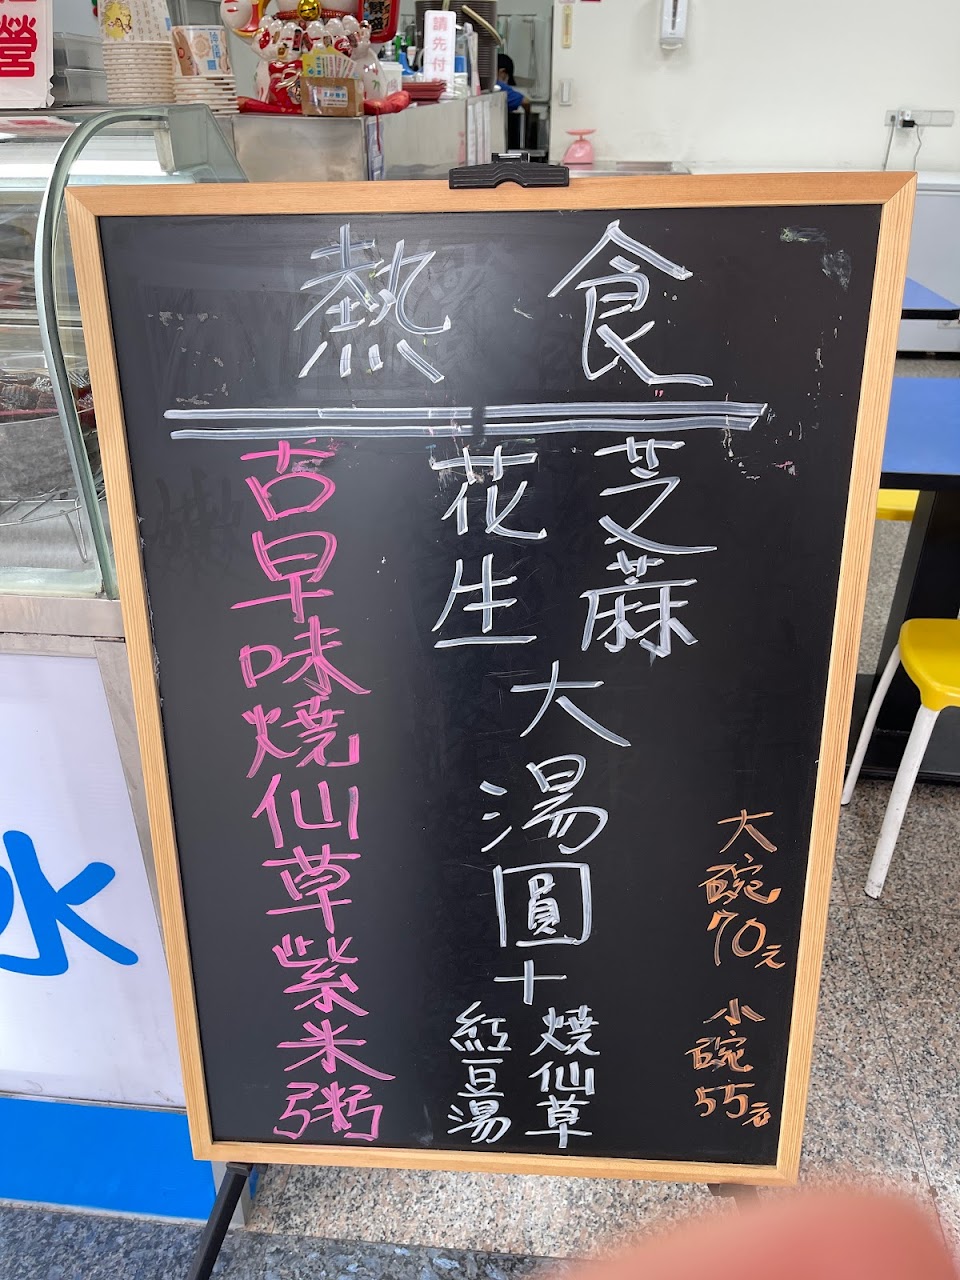 營
請先付
熱食
芝麻
花生
大湯圓+
燒仙草
紅豆湯
古早味燒仙草紫米粥
大碗70元
小碗55元
冰